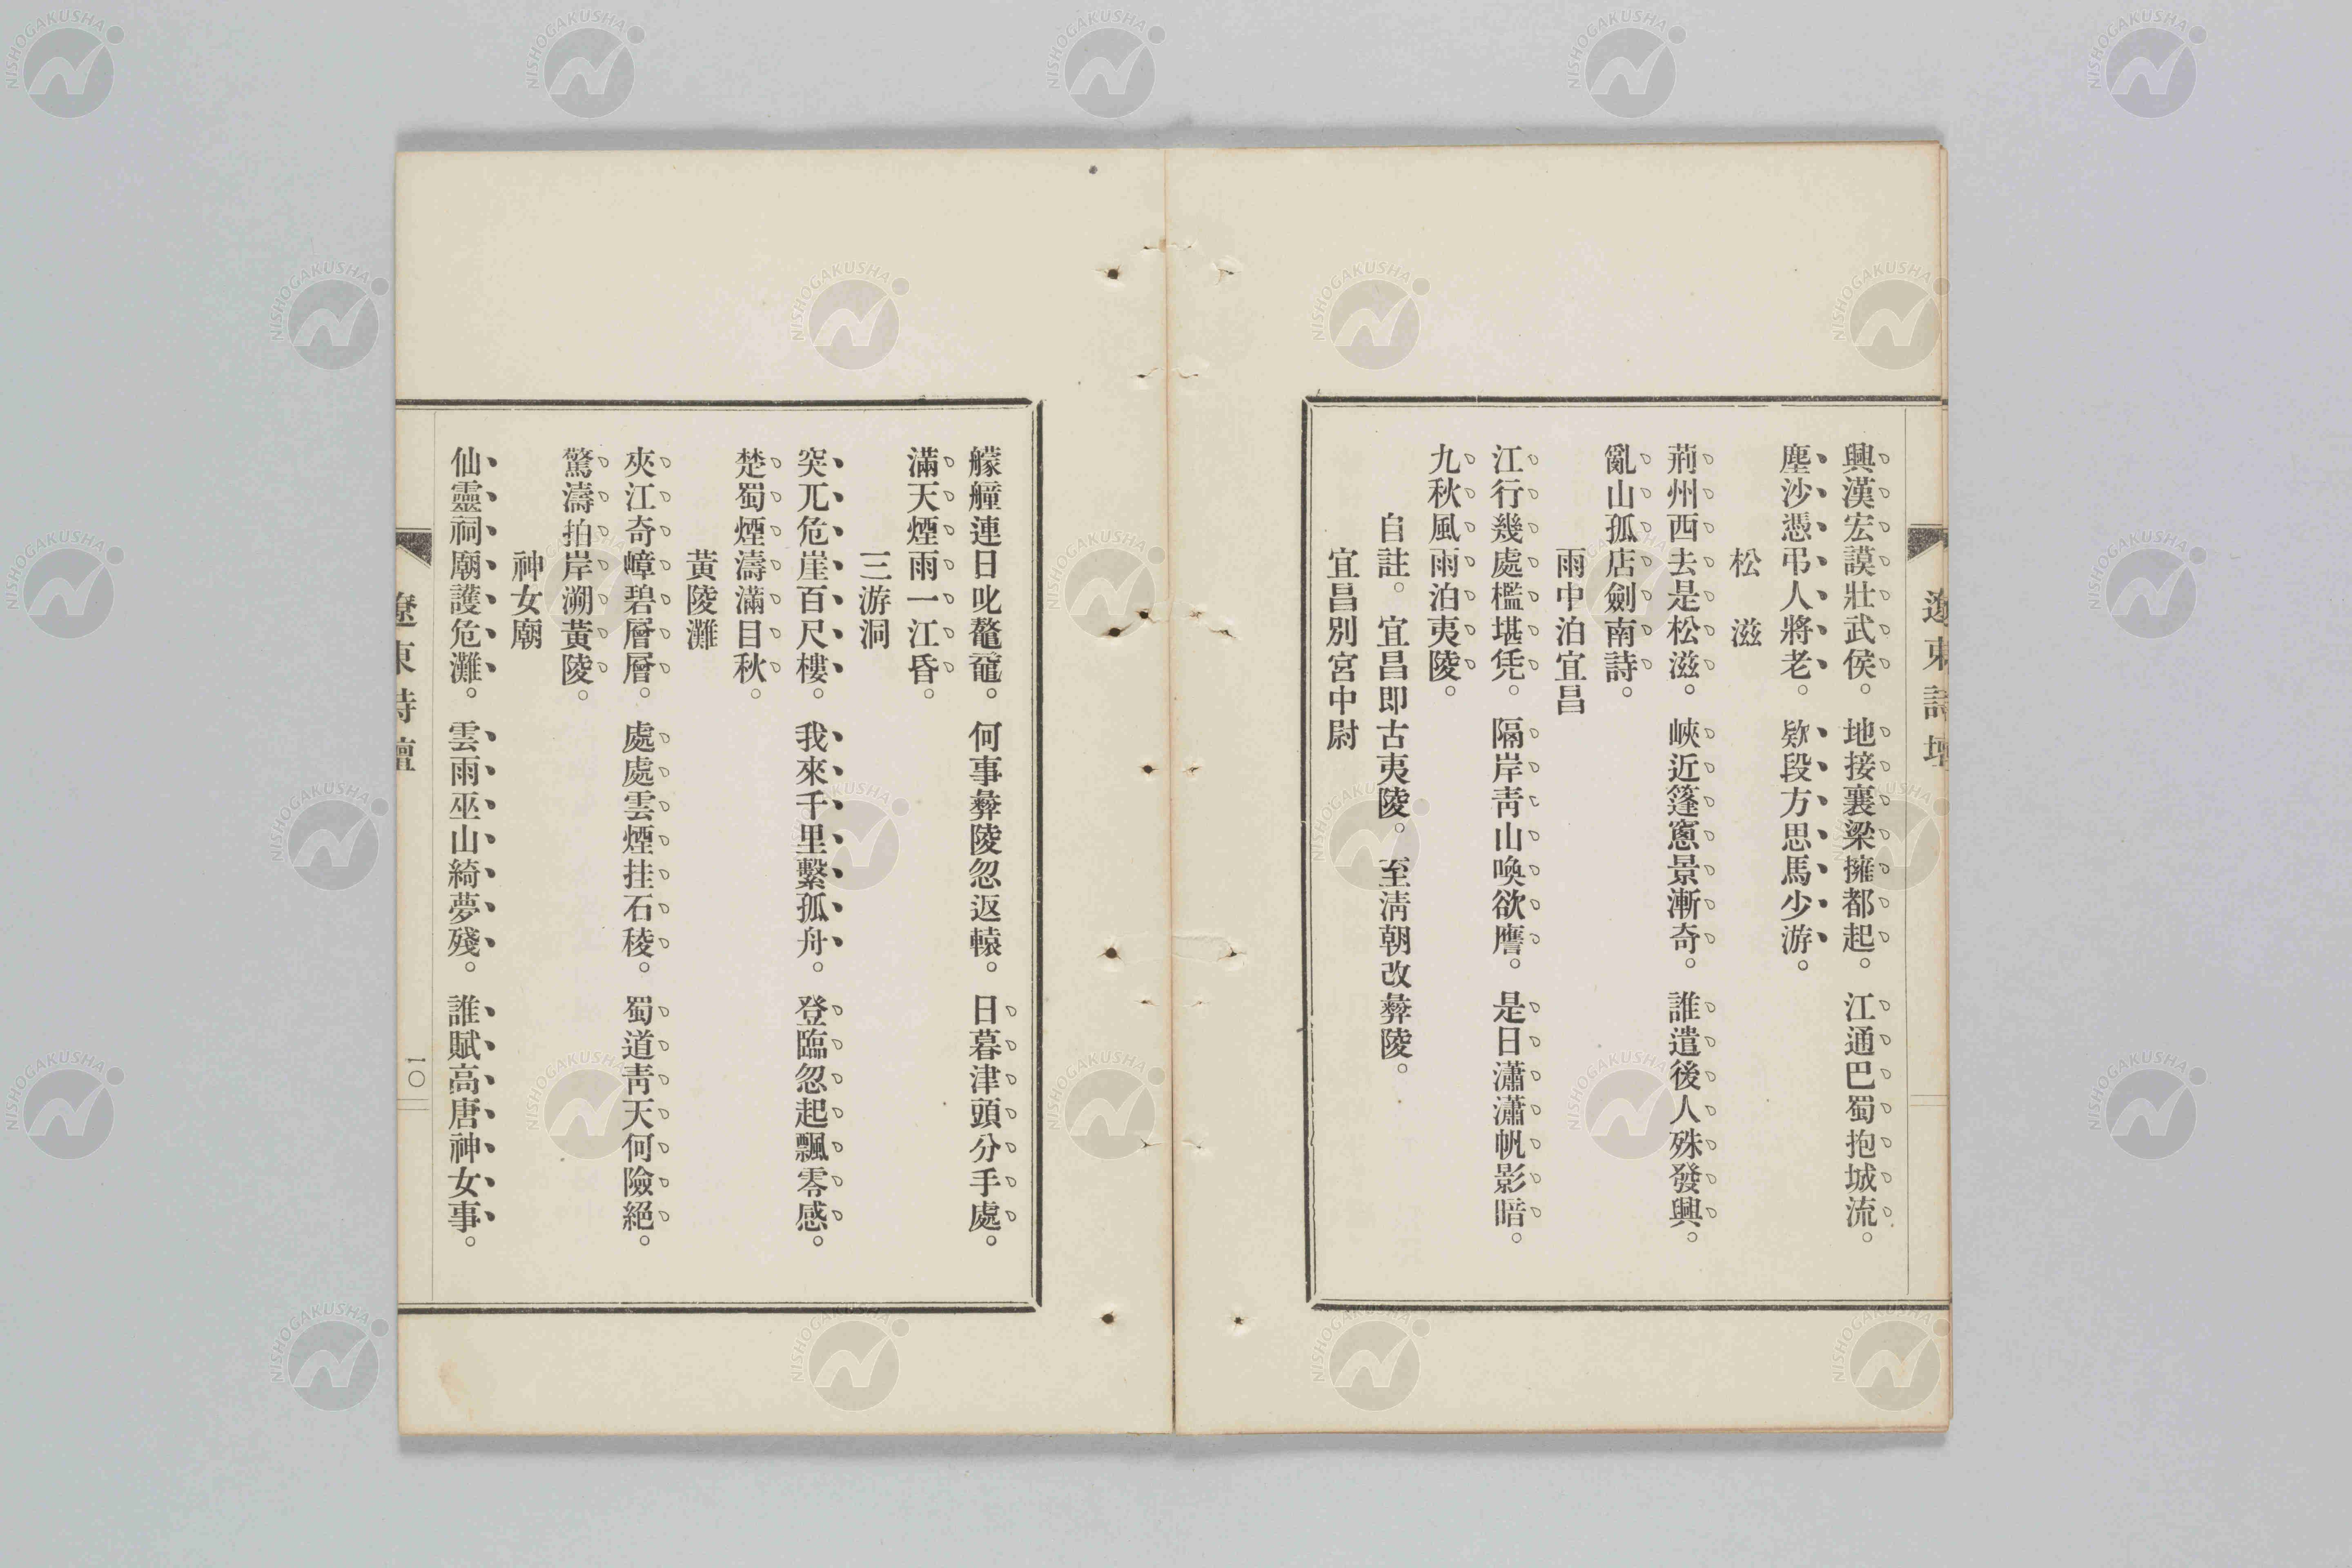 興漢宏謨壯武侯。地接襄梁擁都起。江通巴蜀抱城流。
塵沙憑弔人將老。欵段方思馬少游。
松滋
荊州西去是松滋。峽近篷窻景漸奇。誰遣後人殊發興。
亂山孤店劍南詩。
雨中泊宜昌
江行幾處檻堪凭。隔岸靑山喚欲譍。是日瀟瀟帆影暗。
九秋風雨泊夷陵。
自註。宜昌即古夷陵。至淸朝改彝陵。
宜昌別宮中尉
艨艟連日叱鼇鼉。何事彝陵忽返轅。日暮津頭分手處。
滿天煙雨一江昏。
三游洞
突兀危崖百尺樓。我來千里繫孤舟。登臨忽起飄零感。
楚蜀煙濤滿目秋。
黃陵灘
夾江奇嶂碧層層。處處雲煙挂石稜。蜀道靑天何險絕。
驚濤拍岸溯黃陵。
神女廟
仙靈祠廟護危灘。雲雨巫山綺夢殘。誰賦高唐神女事。
遼東詩壇
一〇
遼東詩壇
NISHOGAKUSHA